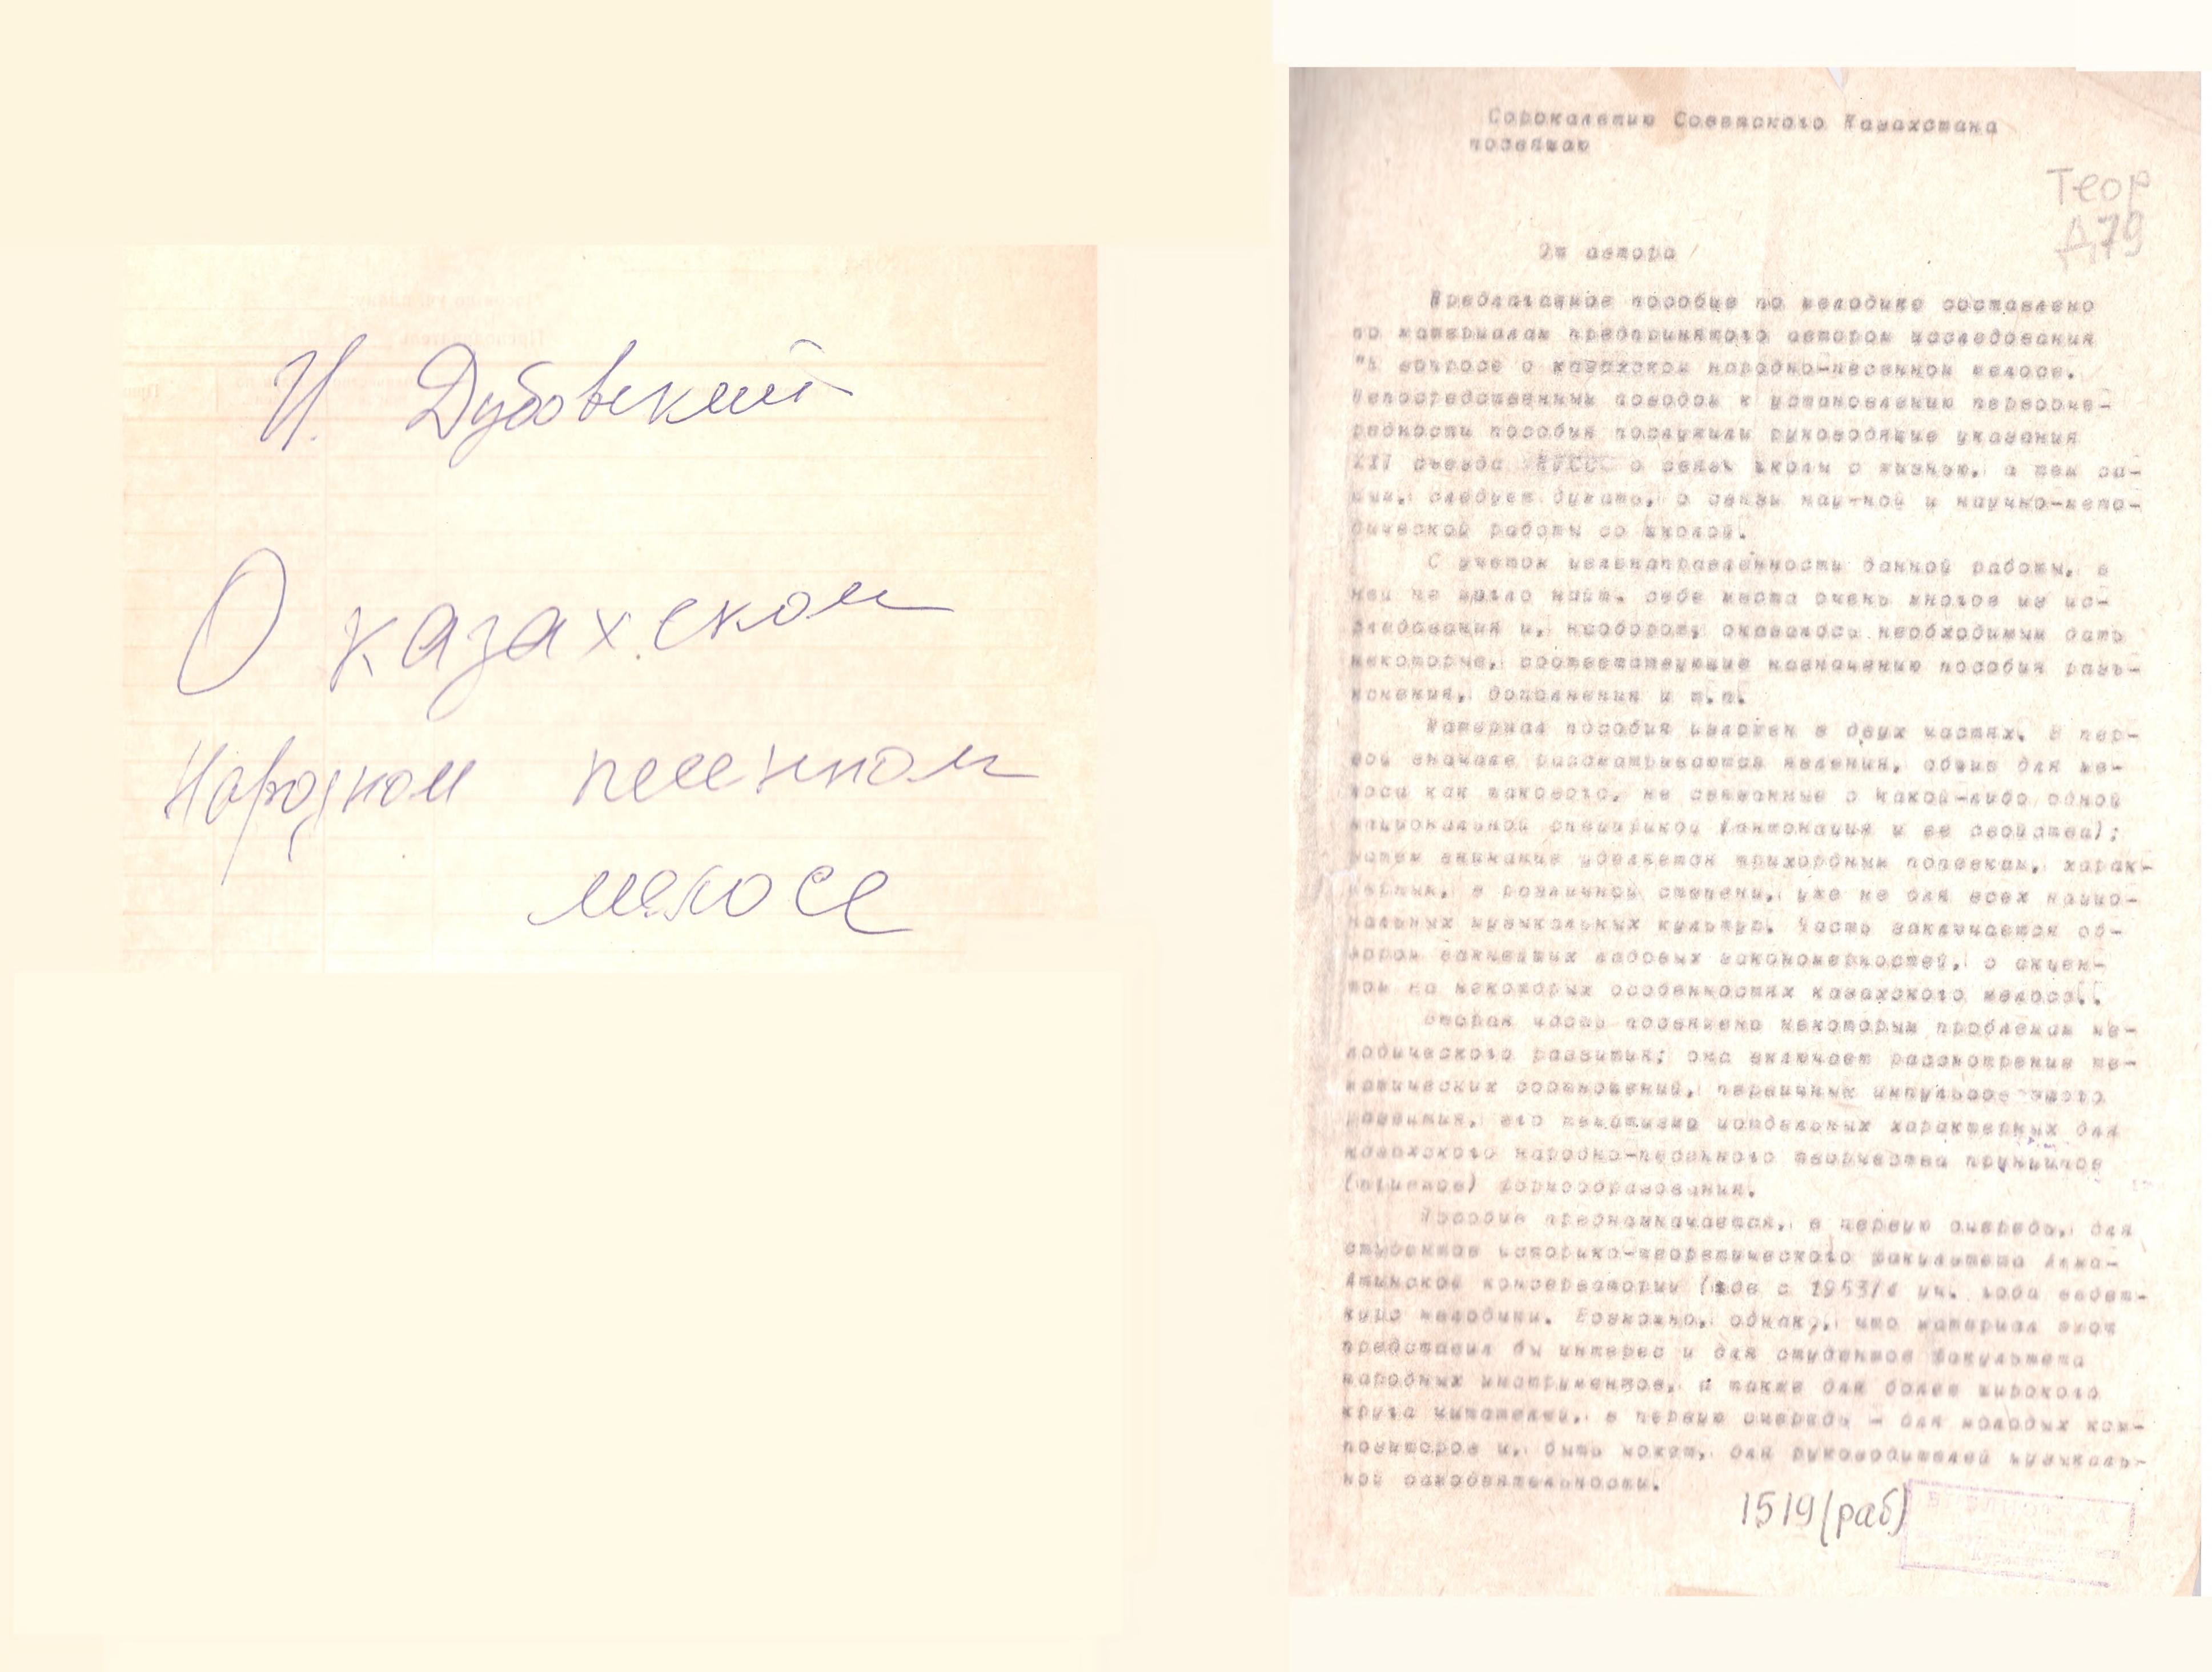 И. Дубовский
О казахском
Народном песенном
мелосе
Сорокалетию Советского Казахстана
посвящаю
Теор
Д79
От автора
Предлагаемое пособие по мелодике составлено
по материалам предпринятого автором исследования
"К вопросе о казахском народно-песенном мелосе.
Непосредственным поводом к установлению первооче-
редности пособия послужили руководящие указания
съезда КПСС о связи школы с жизнью, а тем са-
мым, следует думать, о связи научной и научно-мето-
дической работы со школой.
С учетом целенаправленности данной работы, в
ней не могло найти себе места очень многое из ис-
следования и, наоборот, оказалось необходимым дать
некоторые, соответствующие назначению пособия разъ-
яснения, дополнения и т.п.
Материал пособия изложен в двух частях. В пер-
вой вначале рассматриваются явления, общие для ме-
лоса как такового, не связанные с какой-либо одной
национальной спецификой (интонация и ее свойства);
затем внимание уделяется трихордным попевкам, харак-
терным, в различной степени, уже не для всех нацио-
нальных музыкальных культур. Часть заключается об-
зором важнейших ладовых закономерностей, с акцен-
том на некоторых особенностях казахского мелоса..
Вторая часть посвящена некоторым проблемам ме-
лодического развития; она включает рассмотрение те-
матических соотношений, первичных импульсов этого
развития, его характерных для
казахского народно-песенного творчества принципов
формообразования.
Пособие предназначается, в первую очередь, для
студентов историко-теоретического факультета Алма-
Атинской консерватории (где с 1953/4 уч. года ведет-
курс мелодики. Возможно, однако, что материал этот
представил бы интерес и для студентов факультета
народных инструментов, а также для более широкого
круга читателей, в первую очередь - для молодых ком-
позиторов и, быть может, для руководителей музыкаль-
ной самодеятельности.
1519(раб)